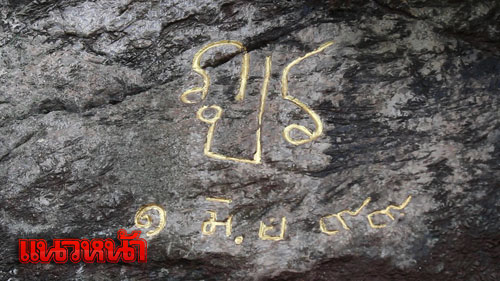 ภปร
๑ มิ.ย ๙๙
แนวหน้า